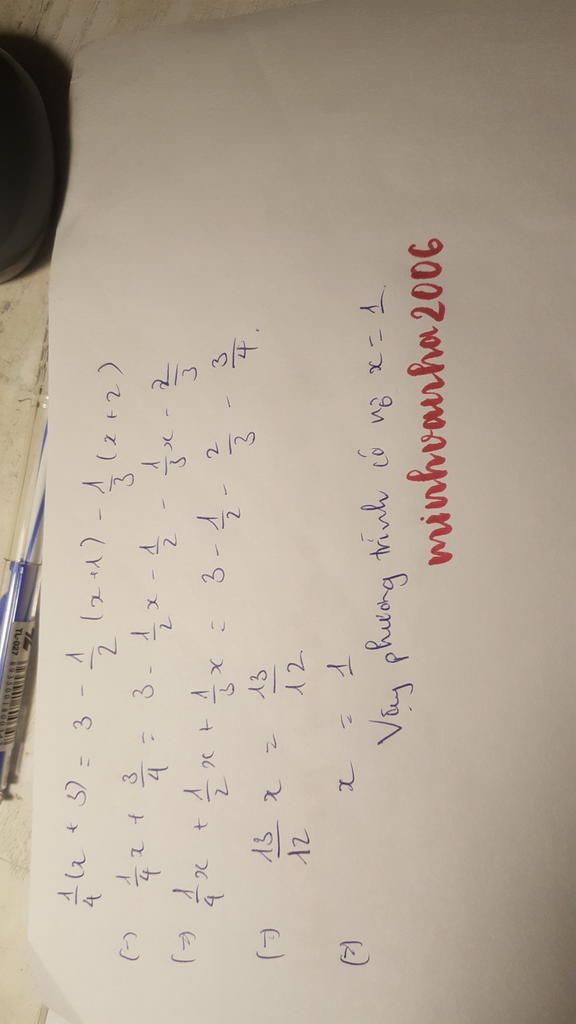 1/4(x + 3) = 3 - 1/2(x+1) - 1/3(x+2)
(=) 1/4x + 3/4 = 3 - 1/2x - 1/2 - 1/3x - 2/3
(=) 1/4x + 1/2x + 1/3x = 3 - 1/2 - 2/3 - 3/4.
(=) 13/12 x = 13/12
(=) x = 1
Vậy phương trình có nº x = 1
minhvanha2006